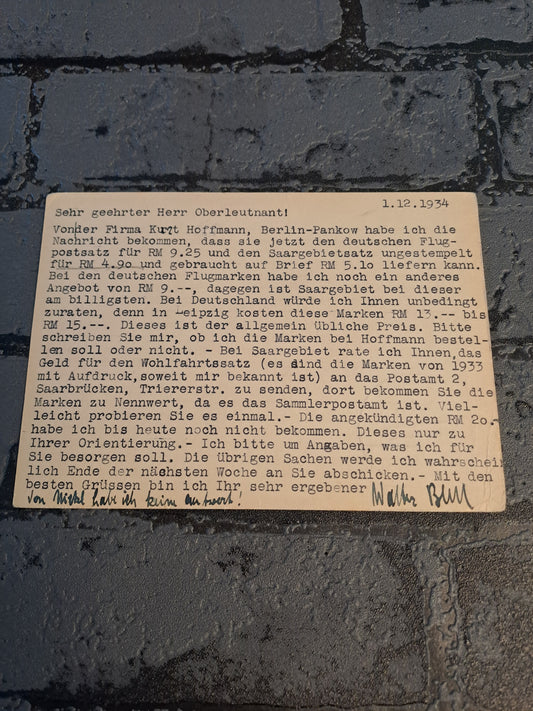 1.12.1934
Sehr geehrter Herr Oberleutnant!
Vonder Firma Kurt Hoffmann, Berlin-Pankow habe ich die
Nachricht bekommen, dass sie jetzt den deutschen Flug-
postsatz für RM 9.25 und den Saargebietsatz ungestempelt
für RM 4.90 und gebraucht auf Brief RM 5.10 liefern kann.
Bei den deutschen Flugmarken habe ich noch ein anderes
Angebot von RM 9.--, dagegen ist Saargebiet bei dieser
am billigsten. Bei Deutschland würde ich Ihnen unbedingt
zuraten, denn in Leipzig kosten diese Marken RM 13.-- bis
RM 15.--. Dieses ist der allgemein übliche Preis. Bitte
schreiben Sie mir, ob ich die Marken bei Hoffmann bestel-
len soll oder nicht. - Bei Saargebiet rate ich Ihnen,das
Geld für den Wohlfahrtssatz (es sind die Marken von 1933
mit Aufdruck,soweit mir bekannt ist) an das Postamt 2,
Saarbrücken, Triererstr. zu senden, dort bekommen Sie die
Marken zu Nennwert, da es das Sammlerpostamt ist. Viel-
leicht probieren Sie es einmal.- Die angekündigten RM 20.
habe ich bis heute noch nicht bekommen. Dieses nur zu
Ihrer Orientierung.- Ich bitte um Angaben, was ich für
Sie besorgen soll. Die Übrigen Sachen werde ich wahrschein
lich Ende der nächsten Woche an Sie abschicken.- Mit den
besten Grüssen bin ich Ihr sehr ergebener Walter
Von habe ich keine Antwort!